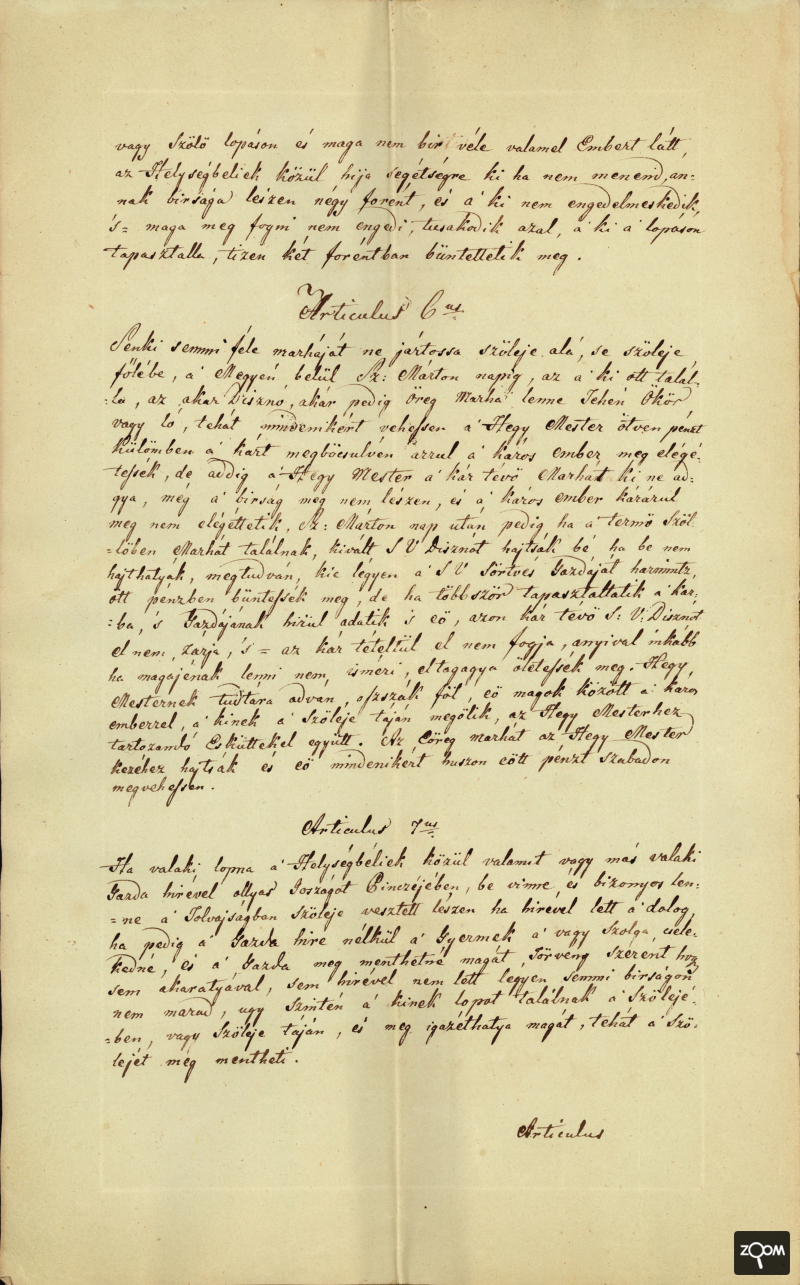 vagy Szölö lopáson és maga nem bir véle valamel Embert látt,
az Helységbéliek közül hija segétségre ki ha nem menend, an-
nak birsága lészen négy forént, és a' ki nem engedelmeskedik,
's= maga meg fogni nem engedi, tusakodik azal, a' ki a' lopáson
tapasztalta, tizen két foréntban büntettetik meg.
Articulus 6us.
Senki semmi féle marháját ne jártossa szöleje alá, se szöleje
fölébe, a' Megyén belül Sz: Márton napig, az a' ki ott talál-
-la, az akar Diszno, akár pedig öreg Marha lenne Tehén Ökör
vagy ló, tehát mindenikért vehessen a' Hegy Mester ötven pénzt
külömben a' kárt megböcsulvén azzul a' káros ember meg elégé-
tessék, de addig a' Hegy Mester a' kár tévö Marhát ki ne ad-
gya, még a' birság meg nem lészen, és a' káros ember kárárul
meg nem elégéttetik, Sz: Márton nap után pedig ha a' termö Szöl
=löben Marhát találnak, kivált S V Disznót hajtsák bé, ha be nem
hajthatyák, megtudván, kié légyen a' S V Sörtvés Gazdáját harmintz
ött pénzben büntessék meg, de ha többször tapasztaltatik a' kár-
=ba, 's Gazdájának hirül adatik is eö, azon kár tévö S: V: Disznót
el nem zárja, 's = az kár tételtül el nem fogja, anyival inkább
ha magájénak lenni nem ismeri, eltagagya ölétessék meg. Hegy
Mesternek tudtára advan, osszák föl, eö magok között a' káros
emberrel, a' kinek a' Szöleje táján megölik, az Hegy Mesterhez
tartozandó Esküttekel együtt. Az Cöreg marhát az Hegy Mester
kezéhez hajtsák és eö mindenikért huszon eött pénzt szabadon
megvehessen.
Articulus 7us.
Ha valaki lopna a' Helységbéliek közül valamit vagy más valaki
Gazda hirével ollyas Joszágot Pinczéjében, be vinne, és bizonyos len:
=ne a' Tolvajságban Szöleje vesztett lészen ha hirével lett a' dolog,
ha pedig a' Gazda hire nélkül a' Gyermek a' vagy Szolga csele-
kedné, és a' Gazda meg menthetné magát, Törveny szerent hogy
sem akaratyával, sem hirével nem lett legyen semmi birságon
nem marad, ugy szintén a' kinek lopot találnak a' Szölejé-
=ben, vagy Szöleje táján, és meg igazéthatya magát, tehát a' Szö-
lejét meg mentheti.
Articulus
ZOOM